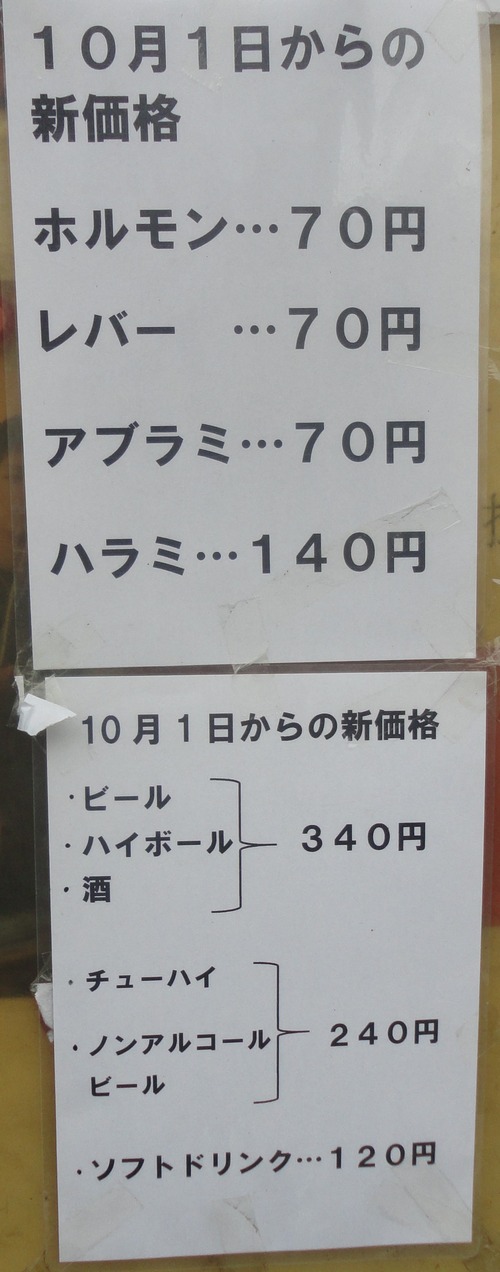 １０月１日からの
新価格
ホルモン…７０円
レバー　…７０円
アブラミ…７０円
ハラミ…１４０円
10月１日からの新価格
・ビール
・ハイボール　３４０円
・酒
・チューハイ
・ノンアルコール　２４０円
ビール
・ソフトドリンク…１２０円